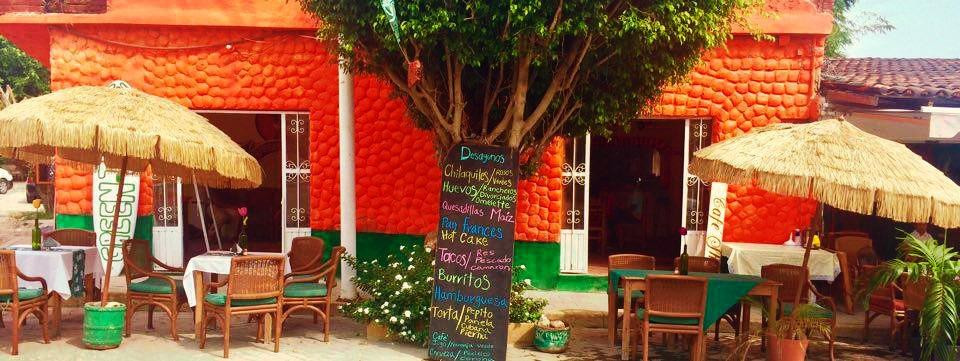 Desayunos
Chilaquiles/Rojos
Verdes
Huevos/Rancheros
Divorciados
Omelette
Quesadillas Maíz
Pan Frances
Hot Cake
Tacos/Res
Pescado
Camaron
Burritos
Hamburguesa
Torta/Pepito
Panela
Cubana
Pierna
Café
GREEN